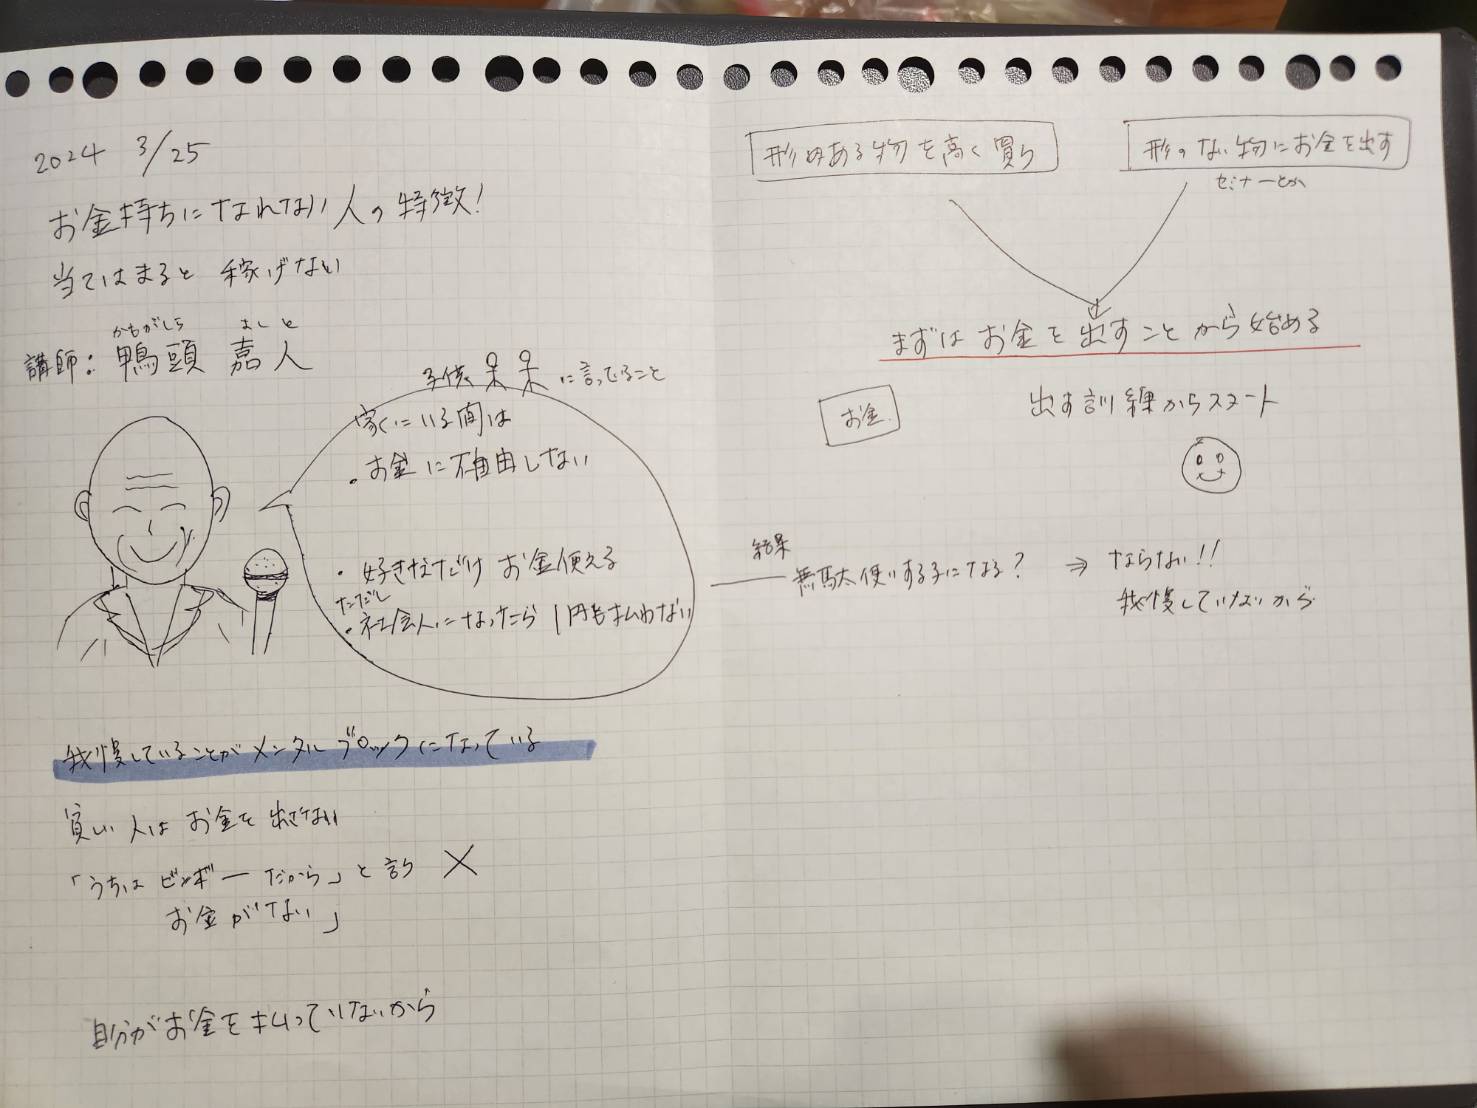 2024 3/25
お金持ちになれない人の特徴!
当てはまると 稼げない
かもがしら よしと
講師: 鴨頭 嘉人
子供 に言ってること
家にいる間は
・お金に不自由しない
・好きなだけ お金使える
ただし
・社会人になったら 1円も払わない
我慢していることがメンタルブロックになっている
貧しい人は お金を出さない
「うちは ビンボーだから」と言う ×
お金がない」
自分がお金を払っていないから
形のある物を高く買う
形のない物にお金を出す
セミナーとか
まずは お金を 出すことから始める
お金
出す訓練からスタート
結果
無駄使いする子になる? ⇒ ならない!!
我慢していないから